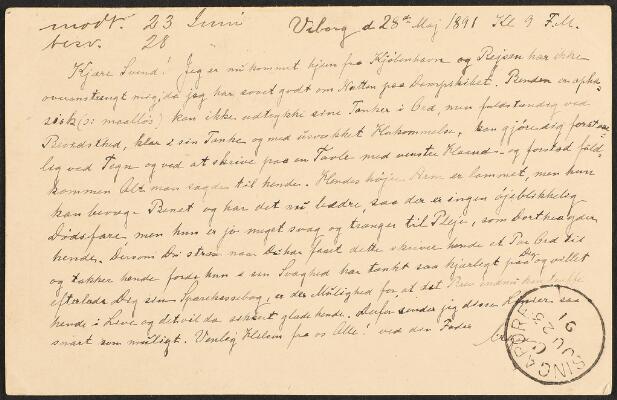 modt. 23 Juni Viborg d 28de Maj 1891 Kl 9 F.M.
besv. 28
Kjære Svend! Jeg er nu kommet hjem fra Kjøbenhavn og Rejsen har ikke
overanstrengt mig, da jeg har sovet godt om Natten paa Dampskibet. er apha-
sisk (ɔ: maalløs) kan ikke udtrykke sine Tanker i Ord, men fuldstændig ved
Bevidsthed, klar i sin Tanke og med usvækket Hukommelse, kan gjøre sig forstaae-
lig ved Tegn og ved at skrive paa en Tavle med venstre Haand - og forstod fuld-
kommen Alt man sagde til hende. Hendes højre Arm er lammet, men hun
kan bevæge Benet og har det nu bedre, saa der er ingen øjeblikkelig
Dødsfare, men hun er jo meget svag og trænger til Pleje, som Dorthea yder
hende. Dersom Du strax naar Du har faaet dette skriver hende et Par Ord til
og takker hende fordi hun i sin Svaghed har tænkt saa kjærligt paa Dig og villet
efterlade Dig sin Sparekassebog, er der Mulighed for, at det endnu kan træffe
hende i Live og det vil da sikkert glæde hende. Derfor sender jeg disse saa
snart som muligt. Venlig Hilsen fra os Alle! ved din Fader
SINGAPORE
JU 23
91